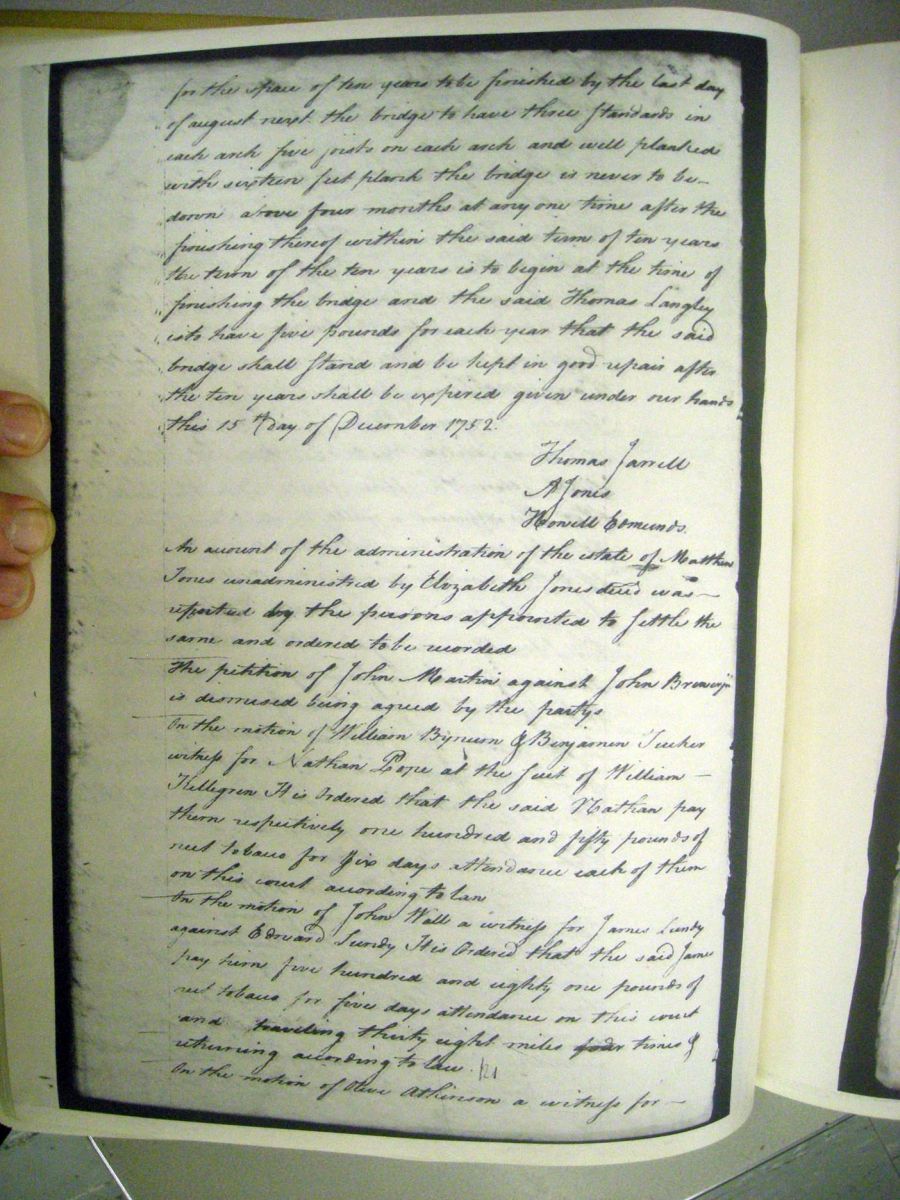 for the space of ten years to be finished by the last day
of august next. the bridge to have three standards in
each arch five joists on each arch and well planked
with sixteen feet plank the bridge is never to be
down above four months at any one time after the
finishing thereof within the said term of ten years
the term of the ten years is to begin at the time of
finishing the bridge and the said Thomas Langley
is to have five pounds for each year that the said
bridge shall stand and be kept in good repair after
the ten years shall be expired given under our hands
this 15th day of December 1752.
Thomas Jarrell
A Jones
Howell Edmunds.
An account of the administration of the estate of Matthew
Jones unadministred by Elizabeth Jones decd was
reported by the persons appointed to settle the
same and ordered to be recorded
The petition of John Martin against John Brewer jr
is dismised being agreed by the partys
On the motion of William Bynum & Benjamin Tucker
witness for Nathan Pope at the suit of William
Killegren It is ordered that the said Nathan pay
them respectively one hundred and fifty pounds of
nett tobacco for six days attendance each of them
on this court according to law
On the motion of John Wall a witness for James Lundy
against Edward Lundy It is Ordered that the said James
pay him five hundred and eighty one pounds of
nett tobacco for five days attendance on this court
and traveling thirty eight miles four times &
returning according to law. 121
On the motion of Olive Atkinson a witness for